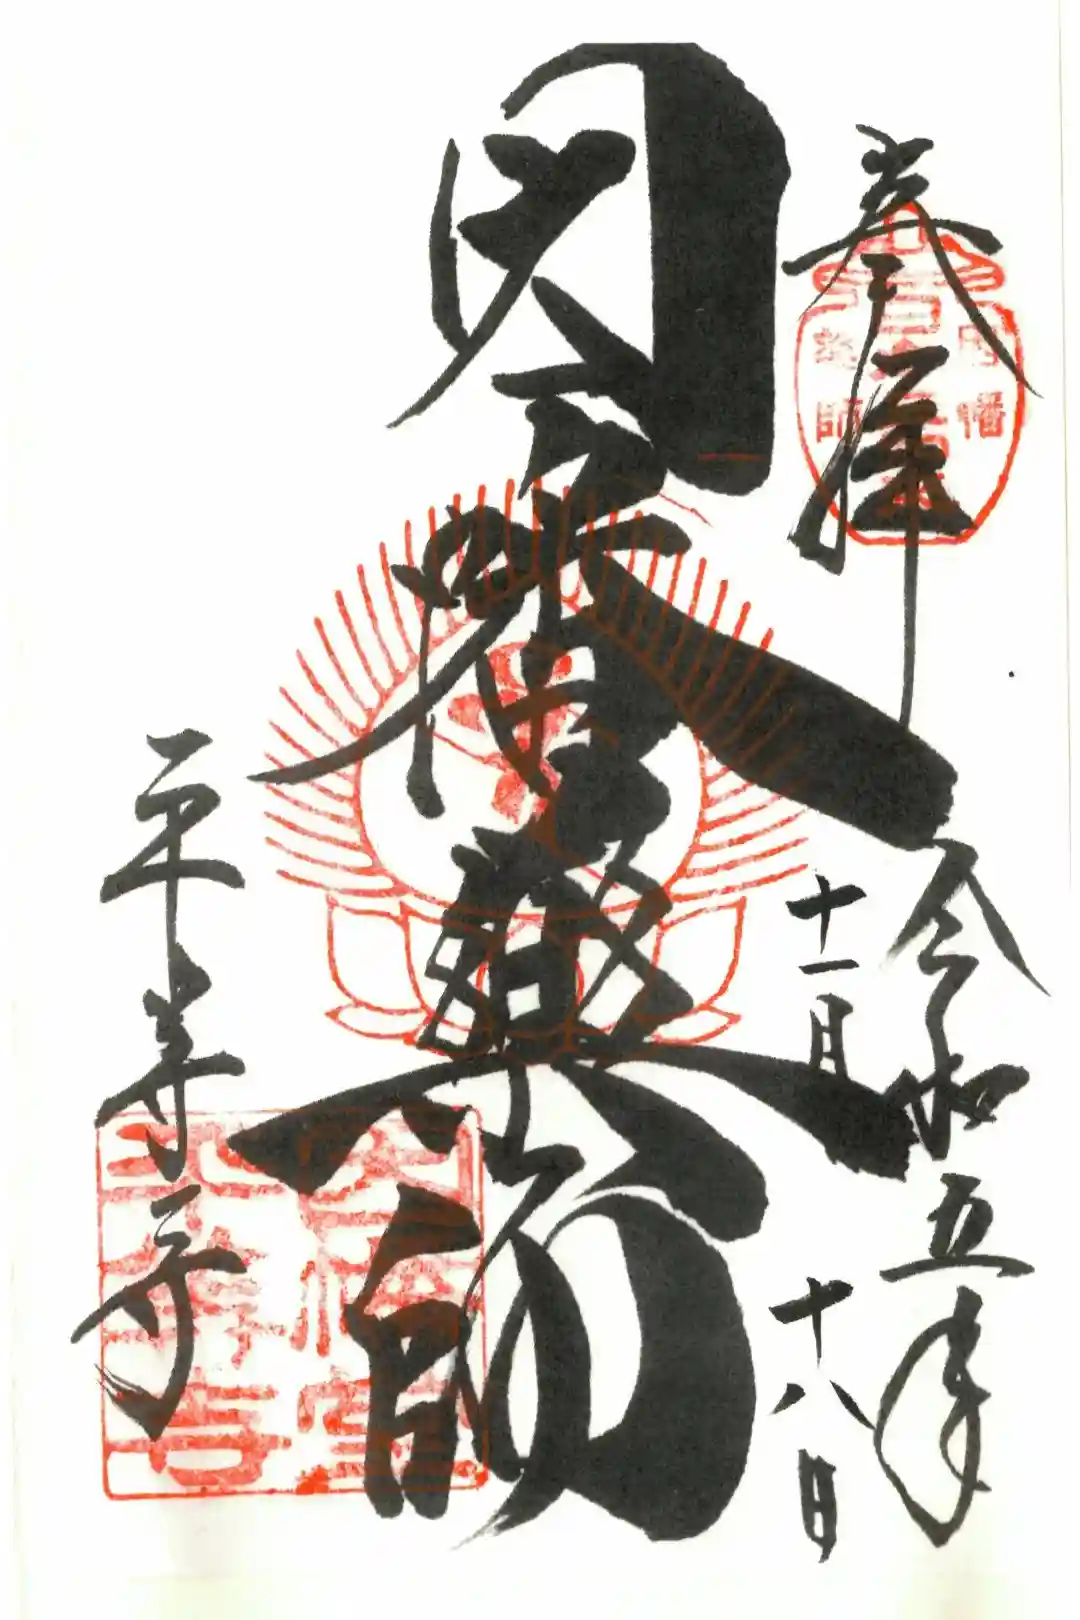 奉拝
令和五年
十一月
十八日
因幡堂
薬師
平等寺
因幡
薬師